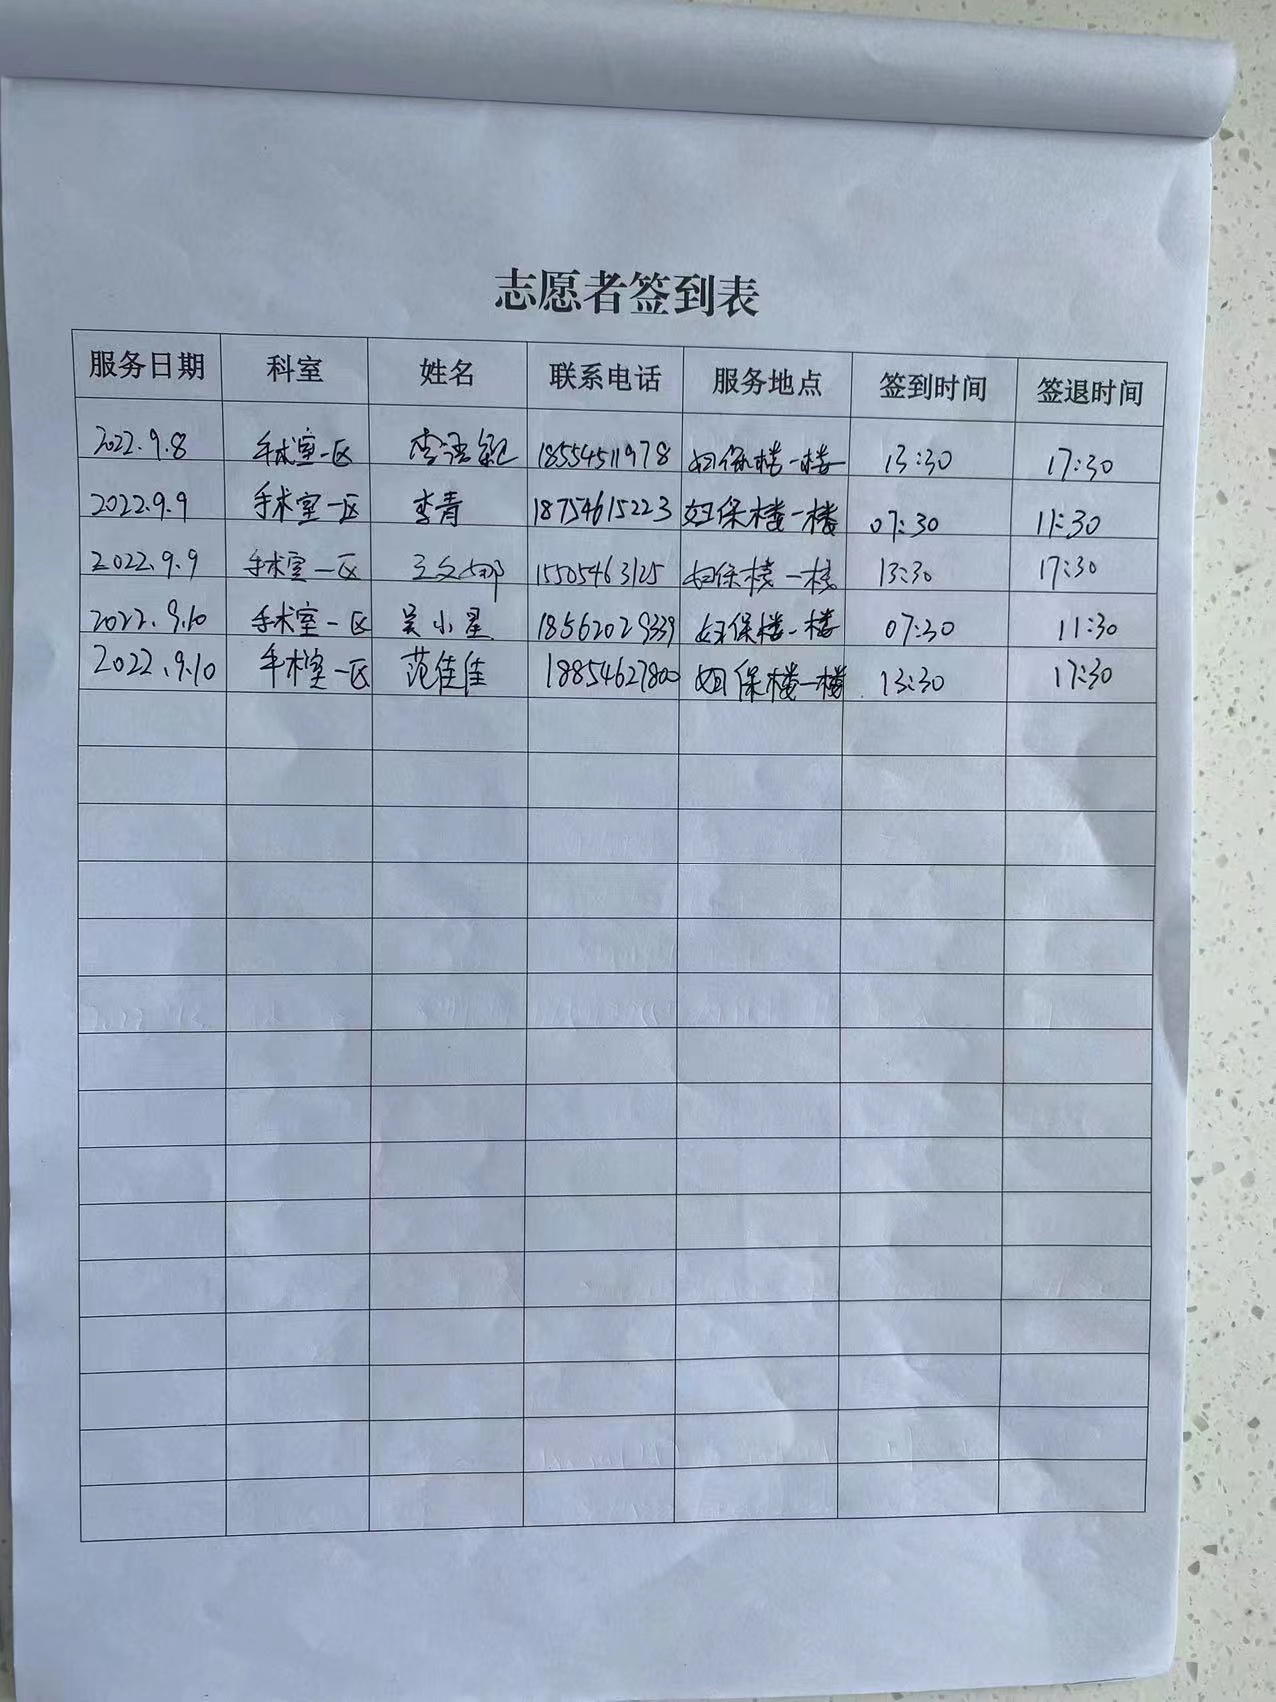 志愿者签到表
服务日期 科室 姓名 联系电话 服务地点 签到时间 签退时间
2022.9.8 手术室一区 李语 18554511978 妇保楼一楼 13:30 17:30
2022.9.9 手术室一区 李青 18754615223 妇保楼一楼 07:30 11:30
2022.9.9 手术室一区 王文娜 15505463125 妇保楼一楼 13:30 17:30
2022.9.10 手术室一区 吴小星 18562029339 妇保楼一楼 07:30 11:30
2022.9.10 手术室一区 范佳佳 18854627800 妇保楼一楼 13:30 17:30